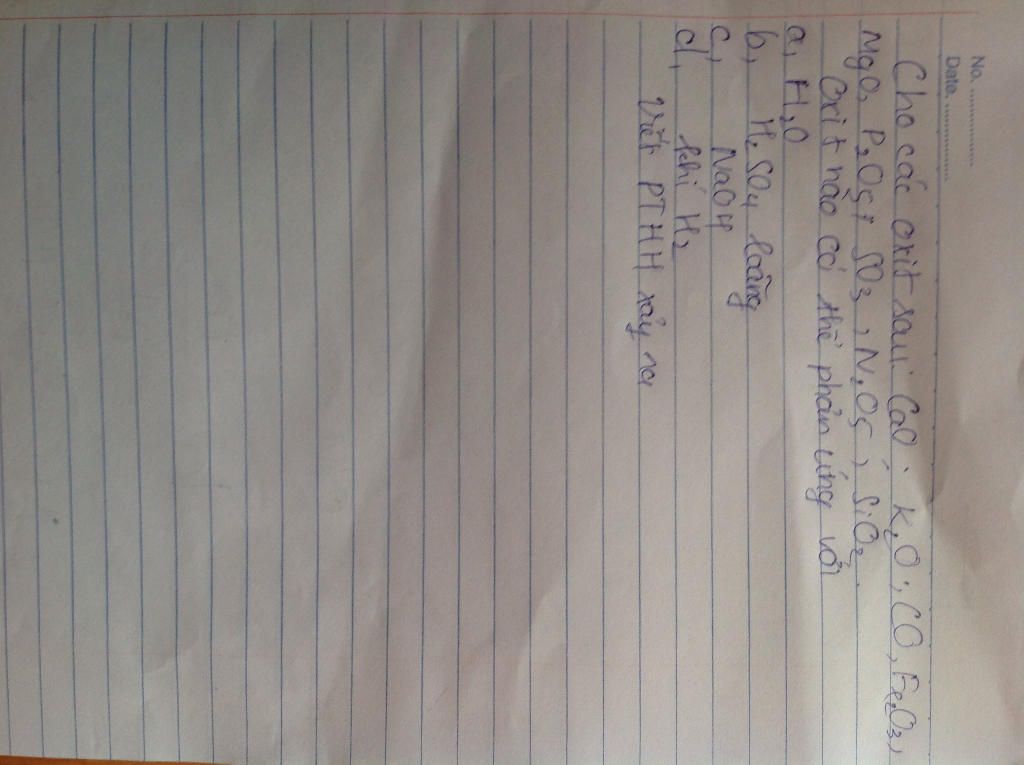 No. ....................
Date. ....................
Cho các oxit sau: CaO; K2O; CO, Fe2O3,
MgO, P2O5; SO3, N2O5, SiO2.
Oxit nào có thể phản ứng với
a, H2O
b, H2SO4 loãng
c, NaOH
d, khí H2
Viết PTHH xảy ra